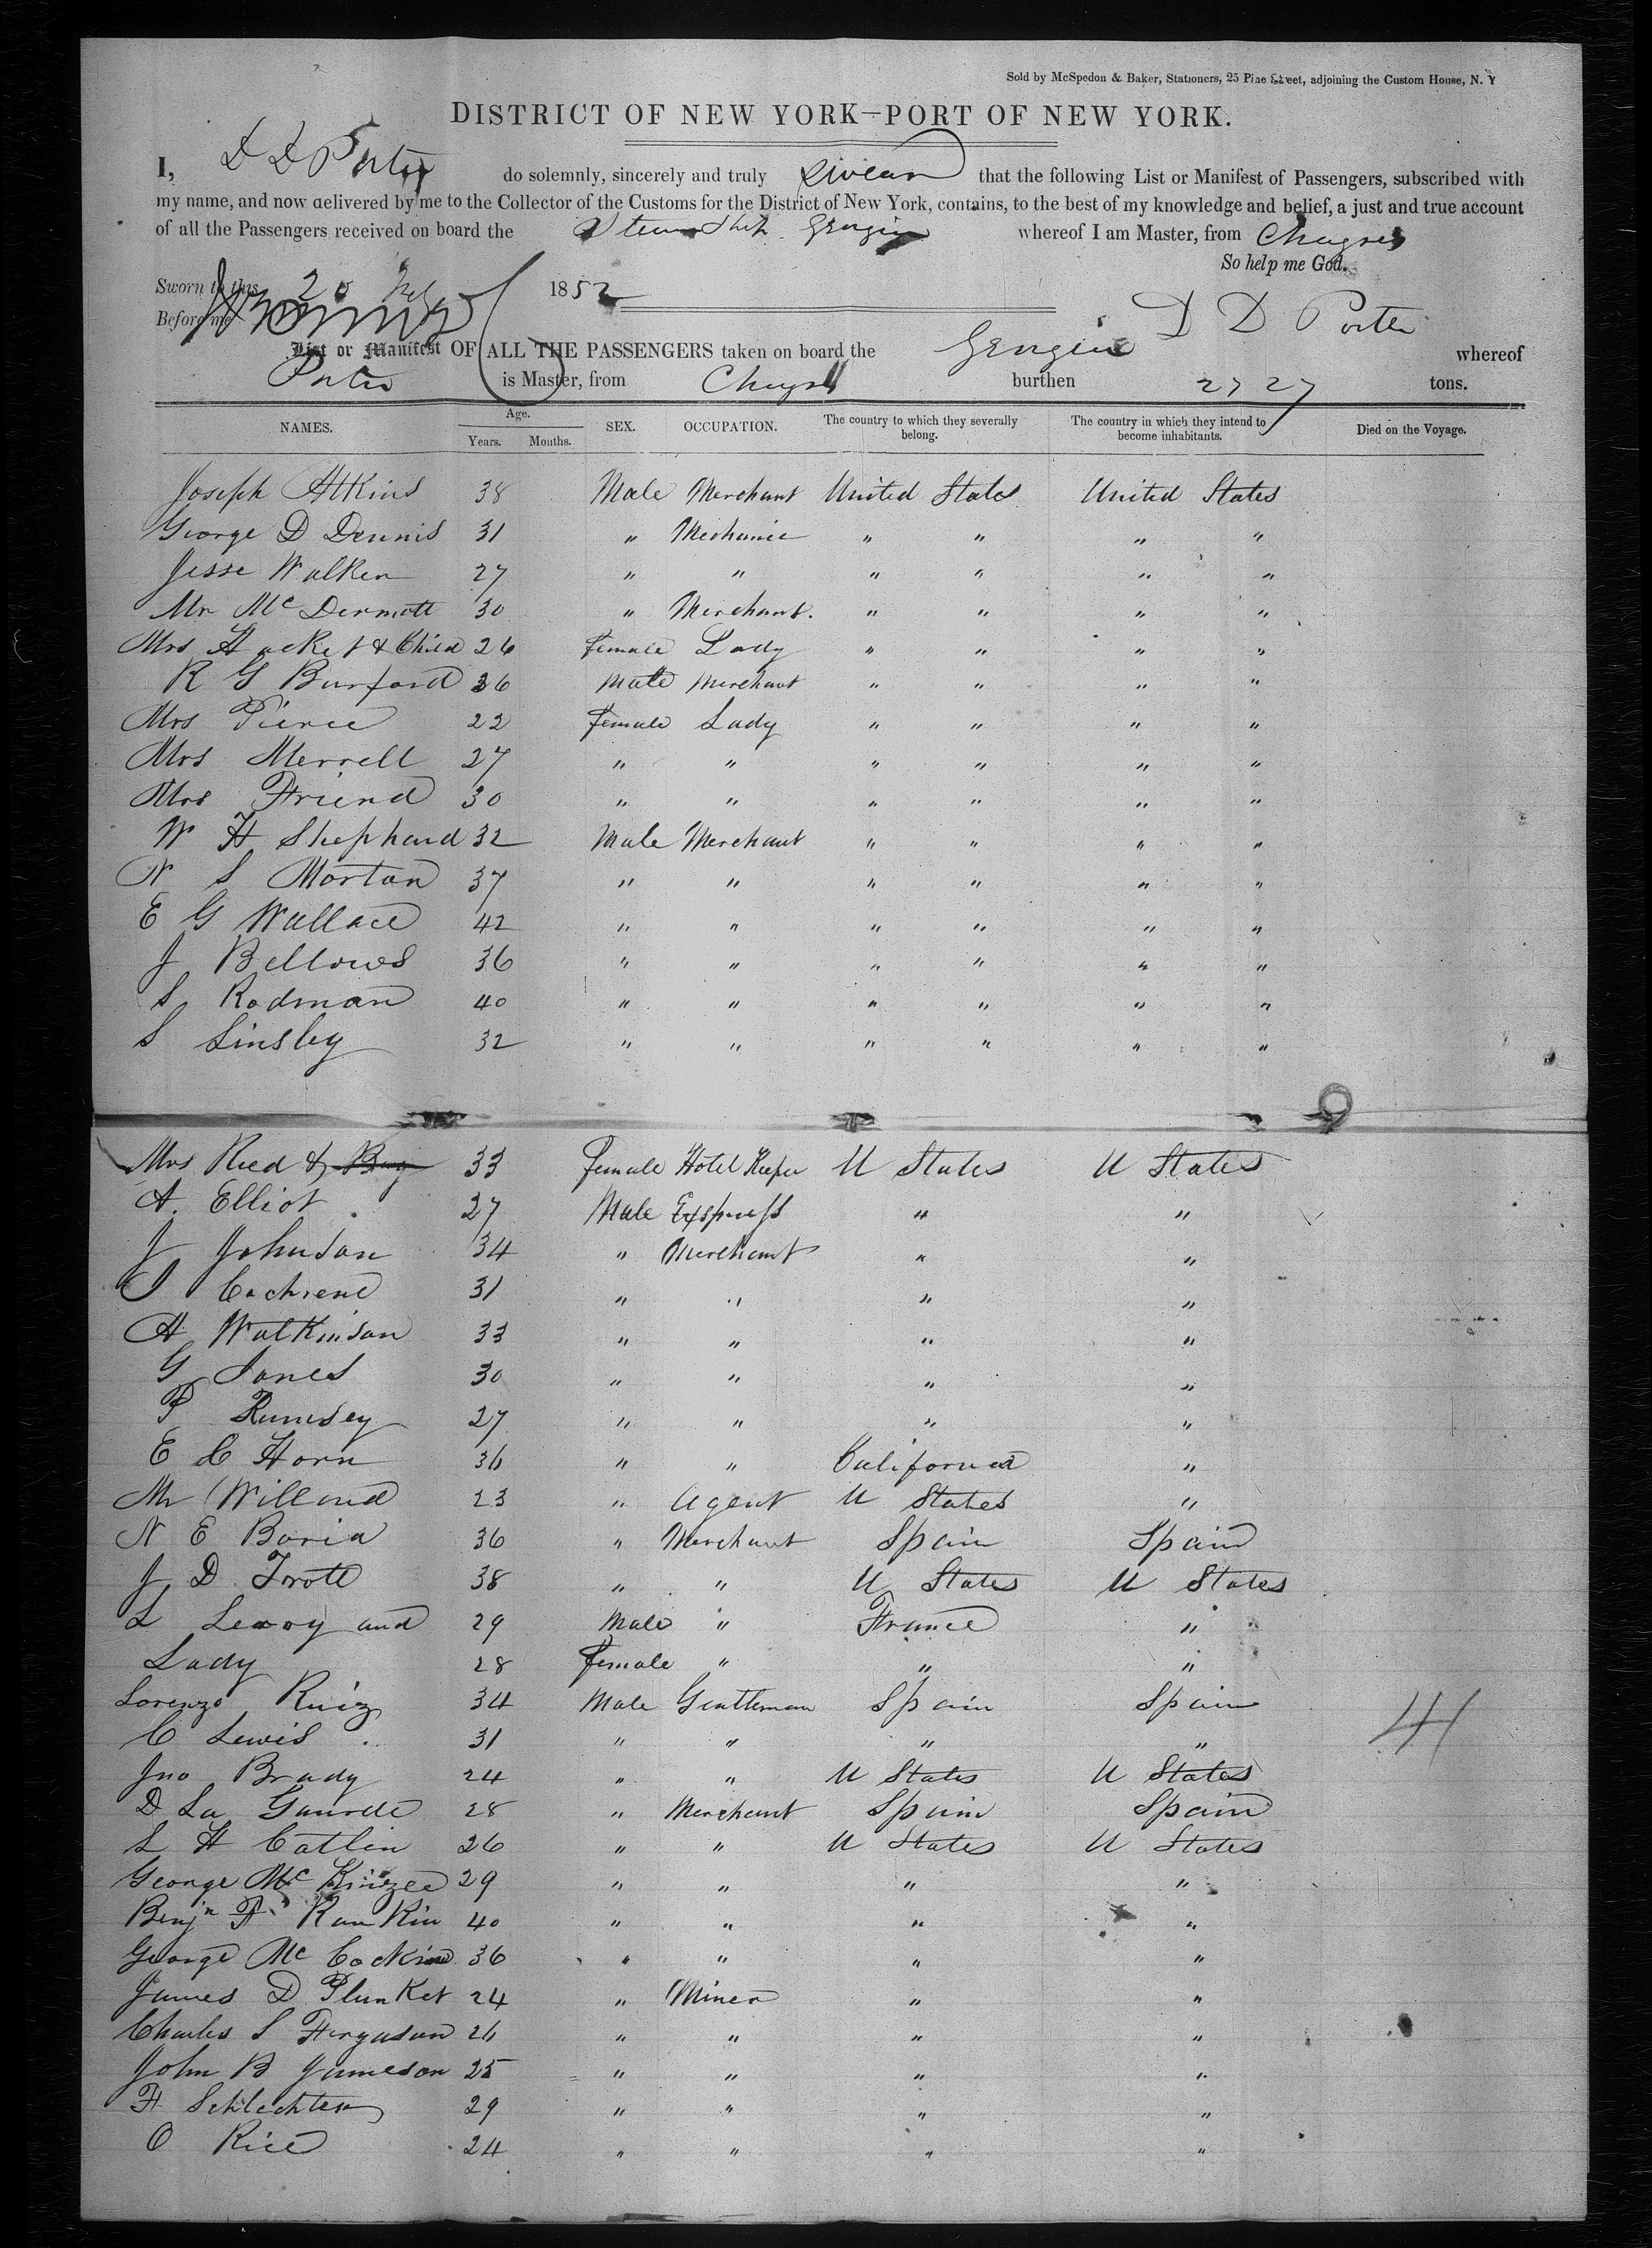 Sold by McSpedon & Baker, Stationers, 25 Pine Street, adjoining the Custom House, N. Y
DISTRICT OF NEW YORK—PORT OF NEW YORK.
I, D D Porter do solemnly, sincerely and truly swear that the following List or Manifest of Passengers, subscribed with
my name, and now delivered by me to the Collector of the Customs for the District of New York, contains, to the best of my knowledge and belief, a just and true account
of all the Passengers received on board the Steam Ship Georgia whereof I am Master, from Chagres
So help me God.
Sworn to this 20 Feby 1852
Before me D D Porter
List or Manifest OF ALL THE PASSENGERS taken on board the Georgia whereof
Porter is Master, from Chagres burthen 2727 tons.
NAMES. Age. Years. Months. SEX. OCCUPATION. The country to which they severally belong. The country in which they intend to become inhabitants. Died on the Voyage.
Joseph Atkins 38 Male Merchant United States United States
George D Dennis 31 " Mechanic " " " "
Jesse Walker 27 " " " " " "
Mr McDermott 30 " Merchant. " " " "
Mrs Hacket & Child 26 Female Lady " " " "
R G Burford 36 Male Merchant " " " "
Mrs Pierce 22 Female Lady " " " "
Mrs Merrell 27 " " " " " "
Mrs Friend 30 " " " " " "
W H Shephard 32 Male Merchant " " " "
N S Morton 37 " " " " " "
E G Wallace 42 " " " " " "
J Bellows 36 " " " " " "
S Rodman 40 " " " " " "
S Linsley 32 " " " " " "
9
Mrs Reed & Boy 33 Female Hotel Keeper U States U States
A. Elliot 27 Male Expspress " "
J Johnson 34 " Merchant " "
I Cochrene 31 " " " "
A Watkinson 33 " " " "
G Jones 30 " " " "
P Rumsey 27 " " " "
E C Horn 36 " " California "
Mr Willard 23 " Agent U States "
N E Boria 36 " Merchant Spain Spain
J D Trott 38 " " U States U States
L Leroy and 29 Male " France "
Lady 28 Female " " "
Lorenzo Ruiz 34 Male Gentleman Spain Spain
C Lewis 31 " " " "
Jno Brady 24 " " U States U States
D La 28 " Merchant Spain Spain
L H Catlin 26 " " U States U States
George McKinzee 29 " " " "
Benjn F Rankin 40 " " " "
George Mc 36 " " " "
James D Plunket 24 " Miner " "
Charles S Ferguson 26 " " " "
John B Jameson 25 " " " "
F Schlechter 29 " " " "
O Rice 24 " " " "
41